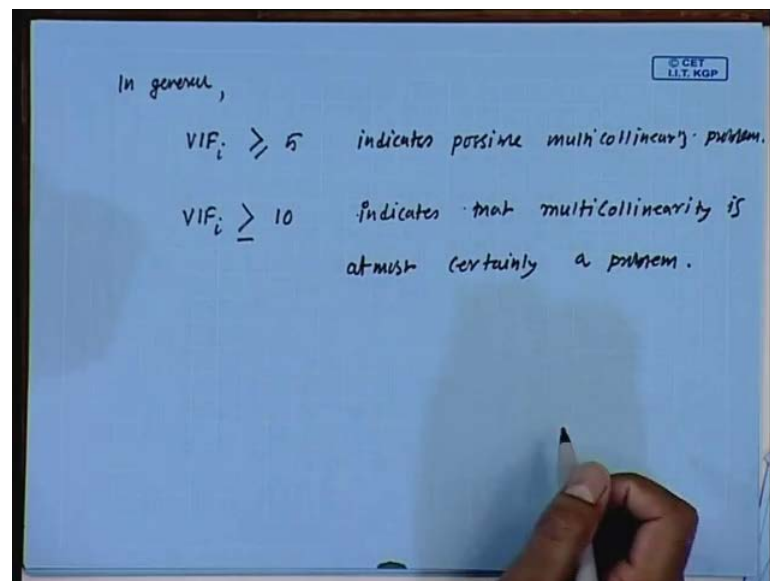 © CET
I.I.T. KGP
In general,
VIFᵢ ≥ 5 indicates possible multicollinearity problem.
VIFᵢ ≥ 10 indicates that multicollinearity is
almost certainly a problem.